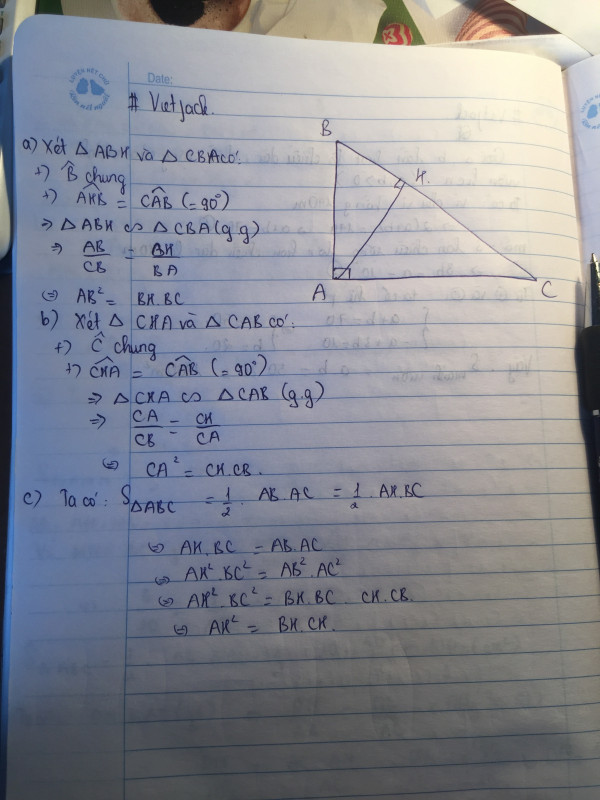 Date:
# Vietjack.
a) Xét △ ABH và △ CBA có:
+) B̂ chung
+) AĤB = CÂB (= 90°)
⇒ △ ABH ∽ △ CBA (g.g)
⇒ AB/CB = BH/BA
⇔ AB² = BH.BC
b) Xét △ CHA và △ CAB có:
+) Ĉ chung
+) CĤA = CÂB (= 90°)
⇒ △ CHA ∽ △ CAB (g.g)
⇒ CA/CB = CH/CA
⇔ CA² = CH.CB.
c) Ta có: S△ABC = 1/2 . AB.AC = 1/2 . AH.BC
⇔ AH.BC = AB.AC
⇔ AH².BC² = AB².AC²
⇔ AH².BC² = BH.BC.CH.CB.
⇔ AH² = BH.CH.
B
H.
A
C